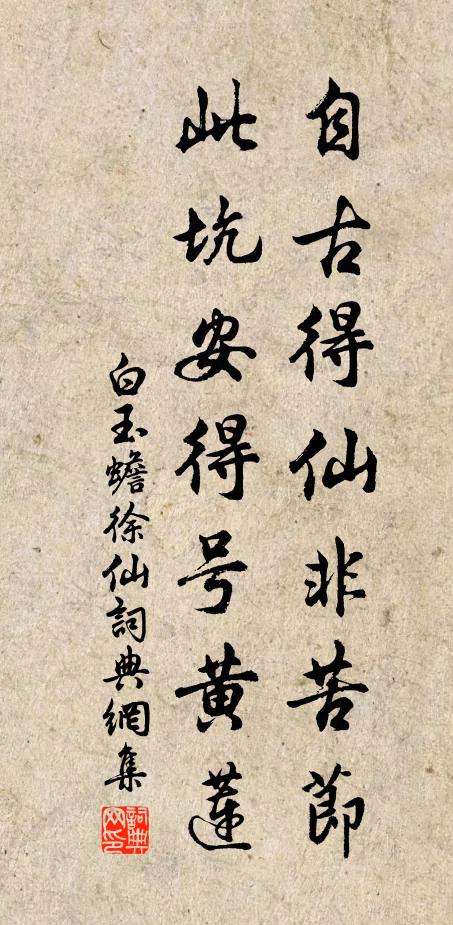 自古得仙非苦節
此坑安得号黄蓮
白玉蟾徐仙詞典網集
詞典网印